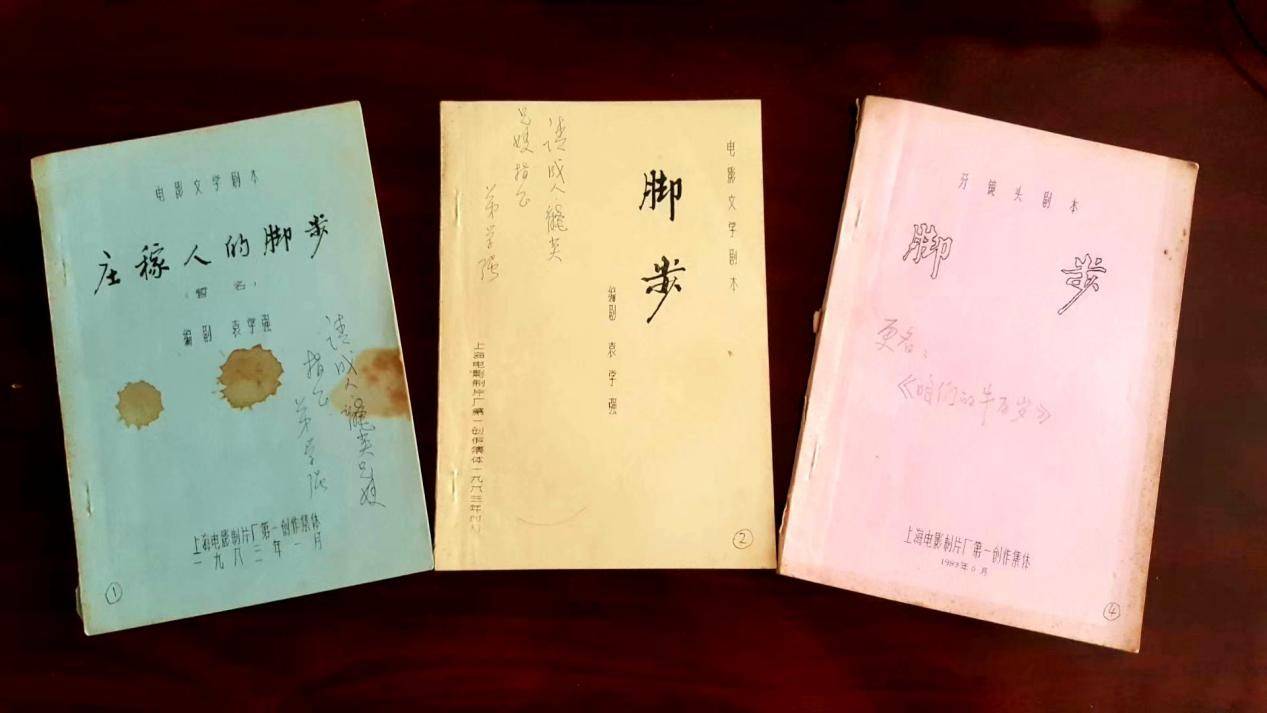 电影文学剧本
庄稼人的脚步
(暂名)
编剧 袁学强
请成人龍英兄嫂
指正
弟学强
上海电影制片厂第一创作集体
一九八三年一月
①
电影文学剧本
脚步
编剧 袁学强
请成人龍英
兄嫂指正
弟学强
上海电影制片厂第一创作集体一九八三年
②
分镜头剧本
脚步
更名:
《咱们的牛百岁》
上海电影制片厂第一创作集体
1983年6月
④